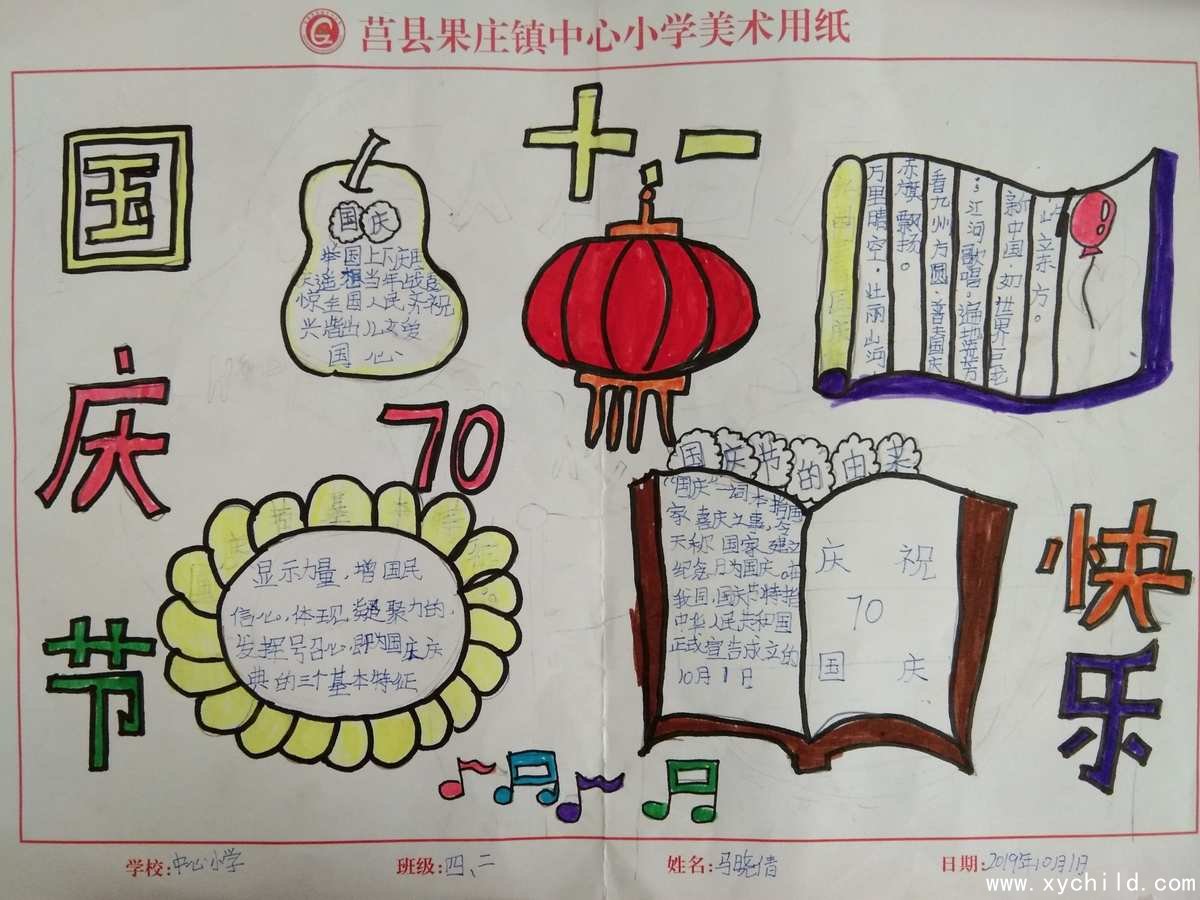 莒县果庄镇中心小学美术用纸
国
庆
节
十一
国庆
举国上下庆
遥想当年
惊全国人民齐祝
兴
国心
万里晴空·壮丽山河
赤旗飘扬。
看九州方圆·普天国庆
江河歌唱。遍地
新中国·如世界巨轮
屹立东方。
70
国庆节的由来
"国庆"一词本指
家喜庆之事,
天称国家建立
纪念日为国庆。在
我国,国庆节特指
中华人民共和国
正式宣告成立的
10月1日
庆祝
70
国庆
国庆节基本
显示力量,增国民
信心,体现凝聚力的,
发挥号召心,即为国庆庆
典的三个基本特征
快
乐
学校:中心小学
班级:四、二
姓名:马晓倩
日期:2019年10月1日
www.xychild.com